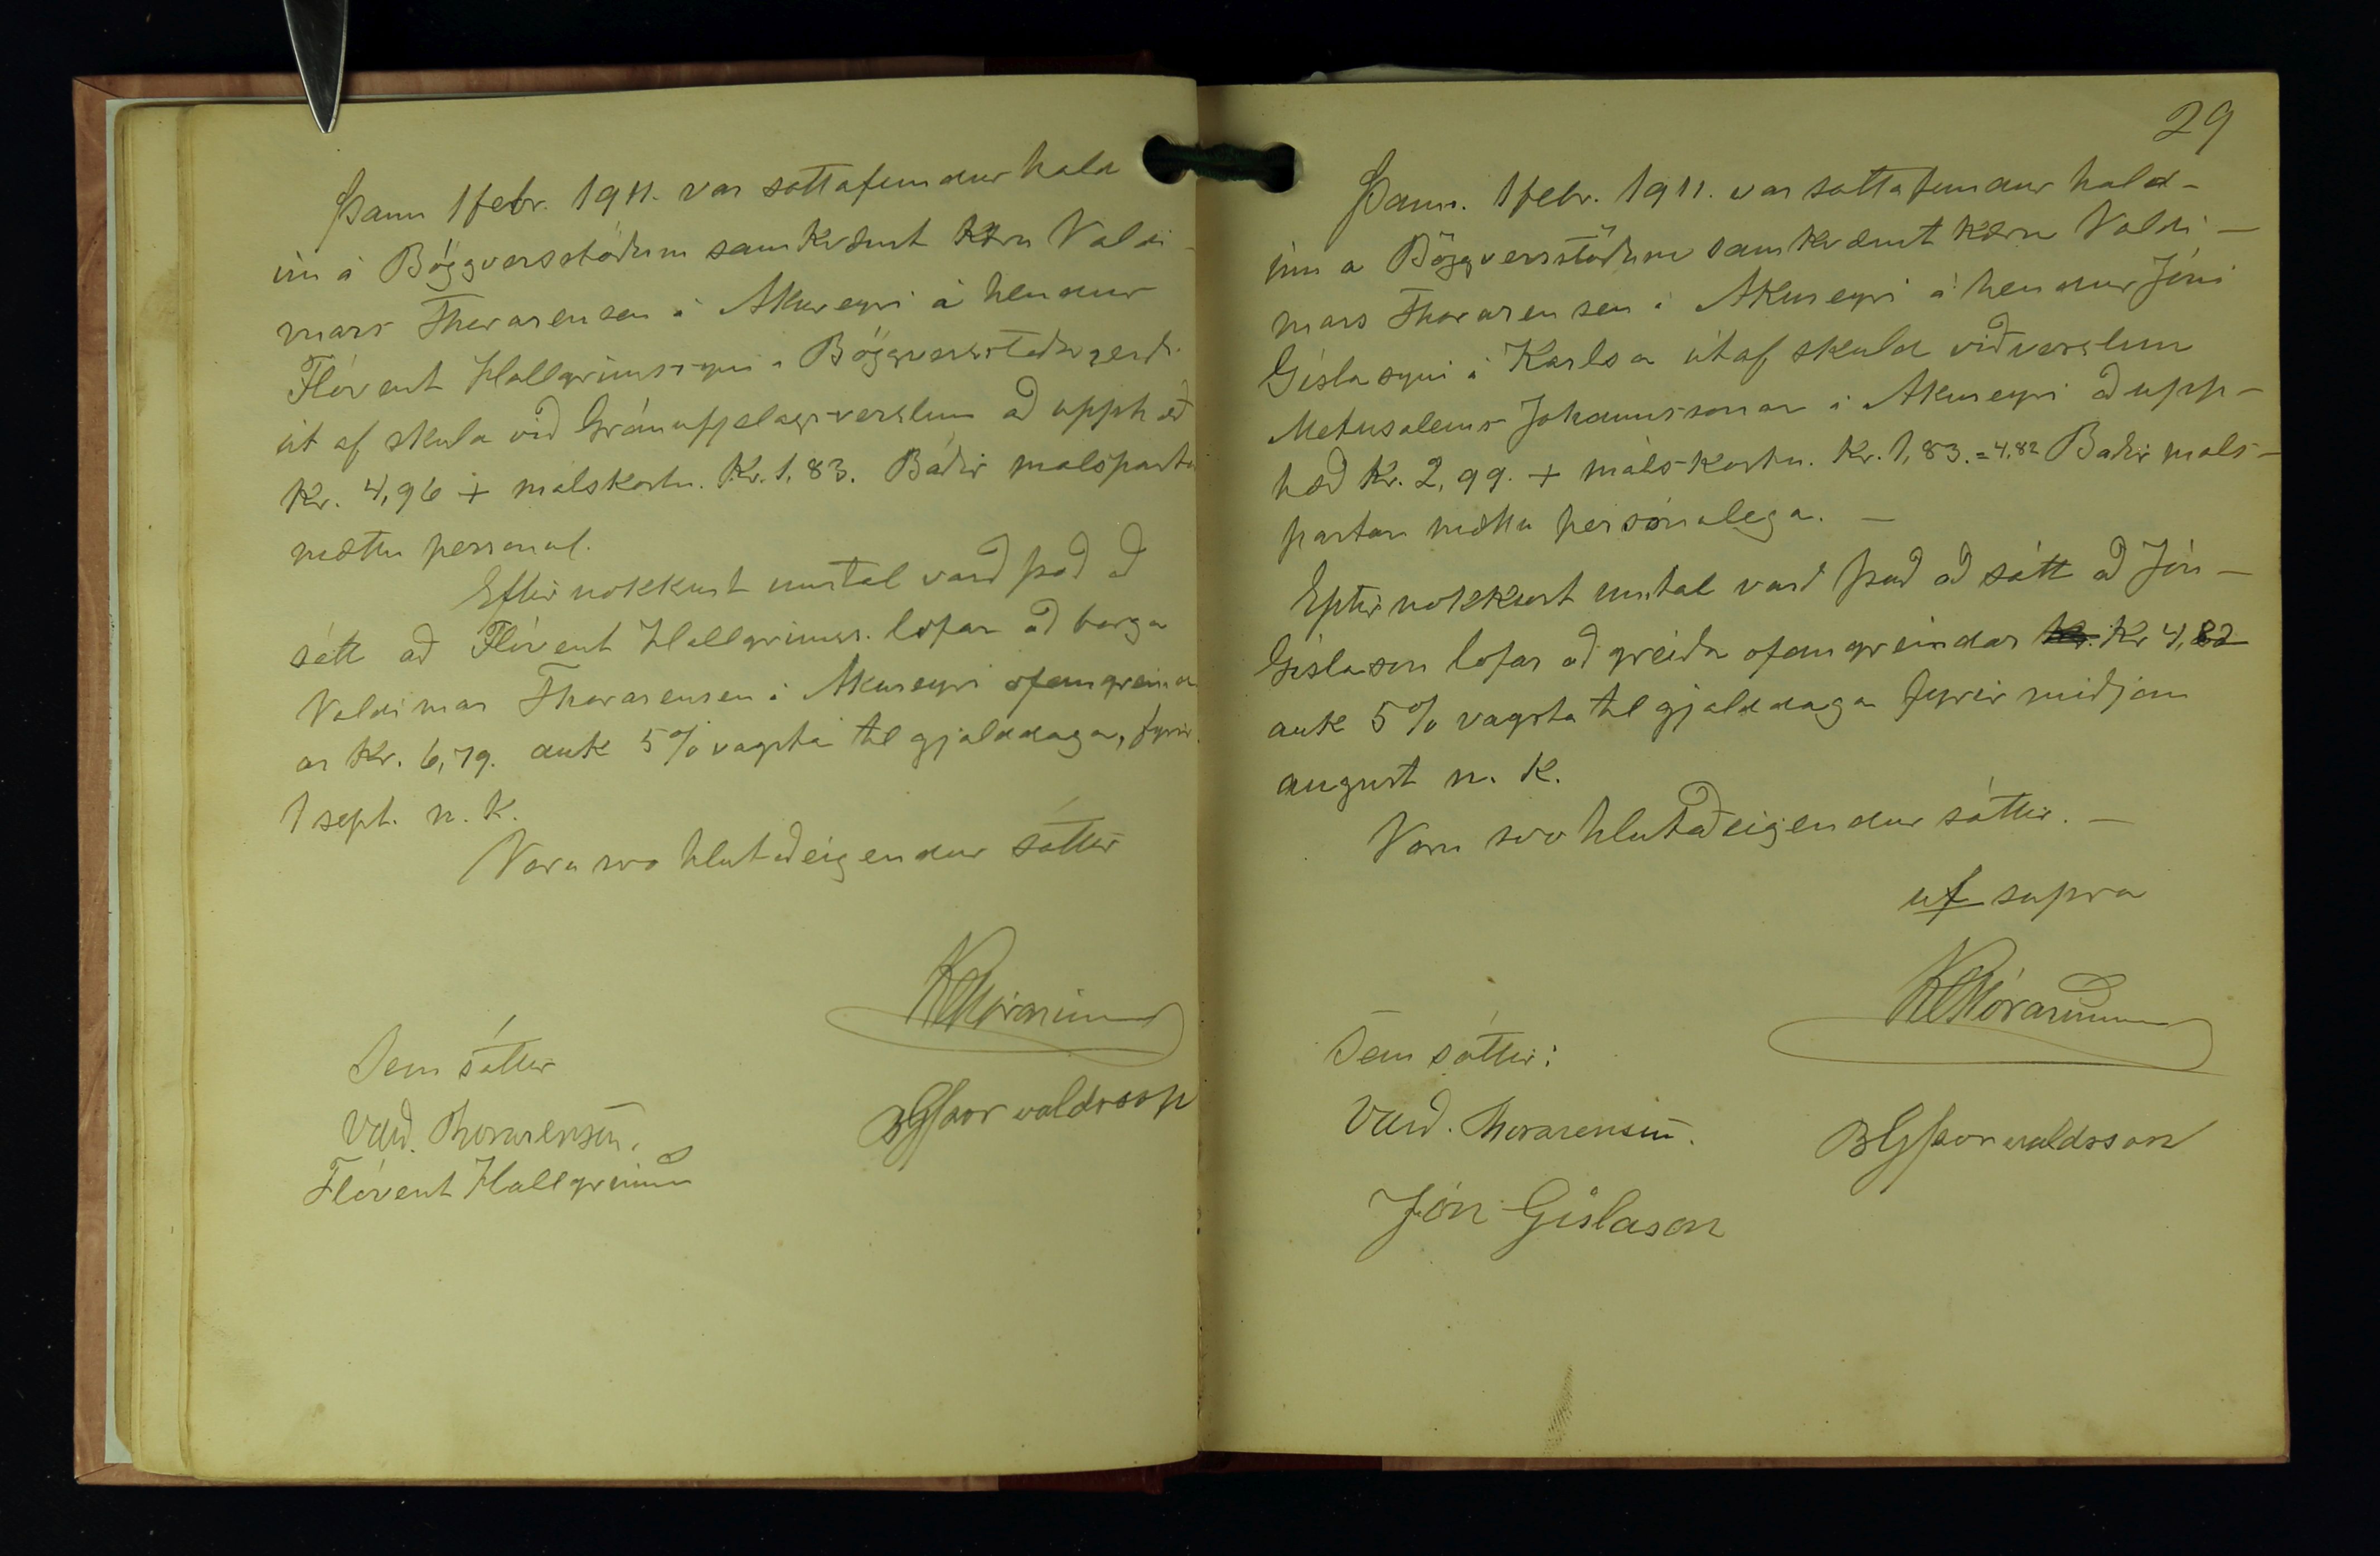 Þann 1 febr. 1911. var sáttafundur hald
inn á Böggversstöðum samkvæmt kæru Valdi-
mars Thorarensen á Akureyri á hendur
Flóvent Hallgrimssyni á Böggversstaðagerði
út af skuld við Gránufjelagsverslun að upphæð
Kr. 4,96 + málskostn. Kr. 1,83. Báðir málspartar
mættu personal.
Eftir nokkurt umtal varð það að
sátt að Flóvent Hallgrimss. lofar að borga
Valdimar Thorarensen á Akureyri ofangreind
ar Kr. 6,79. auk 5% vagsta til gjalddaga, fyrir
1 sept. n. k.
Voru svo hlutaðeigendur sáttir
Sem sáttir
Vald. Thorarensen.
BGÞorvaldsson
Flóvent Hallgrimss
29
Þann. 1 febr. 1911. var sáttafundur hald-
inn a Böggversstöðum samkvæmt kæru Valdi-
mars Thorarensen á Akureyri á hendur Jóni
Gíslasyni á Karlsa út af skuld við verslun
Metusalems Johannssonar á Akureyri að upp-
hæð Kr. 2,99. + máls-kostn. Kr. 1,83. = 4,82 Baðir mals-
partar mættu persónulega. -
Eptir nokkurt umtal varð það að sátt að Jón-
Gíslason lofar að greiða ofangreindar Kr. Kr 4,82
auk 5% vagsta til gjalddaga fyrir miðjan
august n. k.
Voru svo hlutaðeigendur sáttir. -
ut supra
Sem sáttir:
Vald. Thorarensen.
BGÞorvaldsson
Jón Gíslason